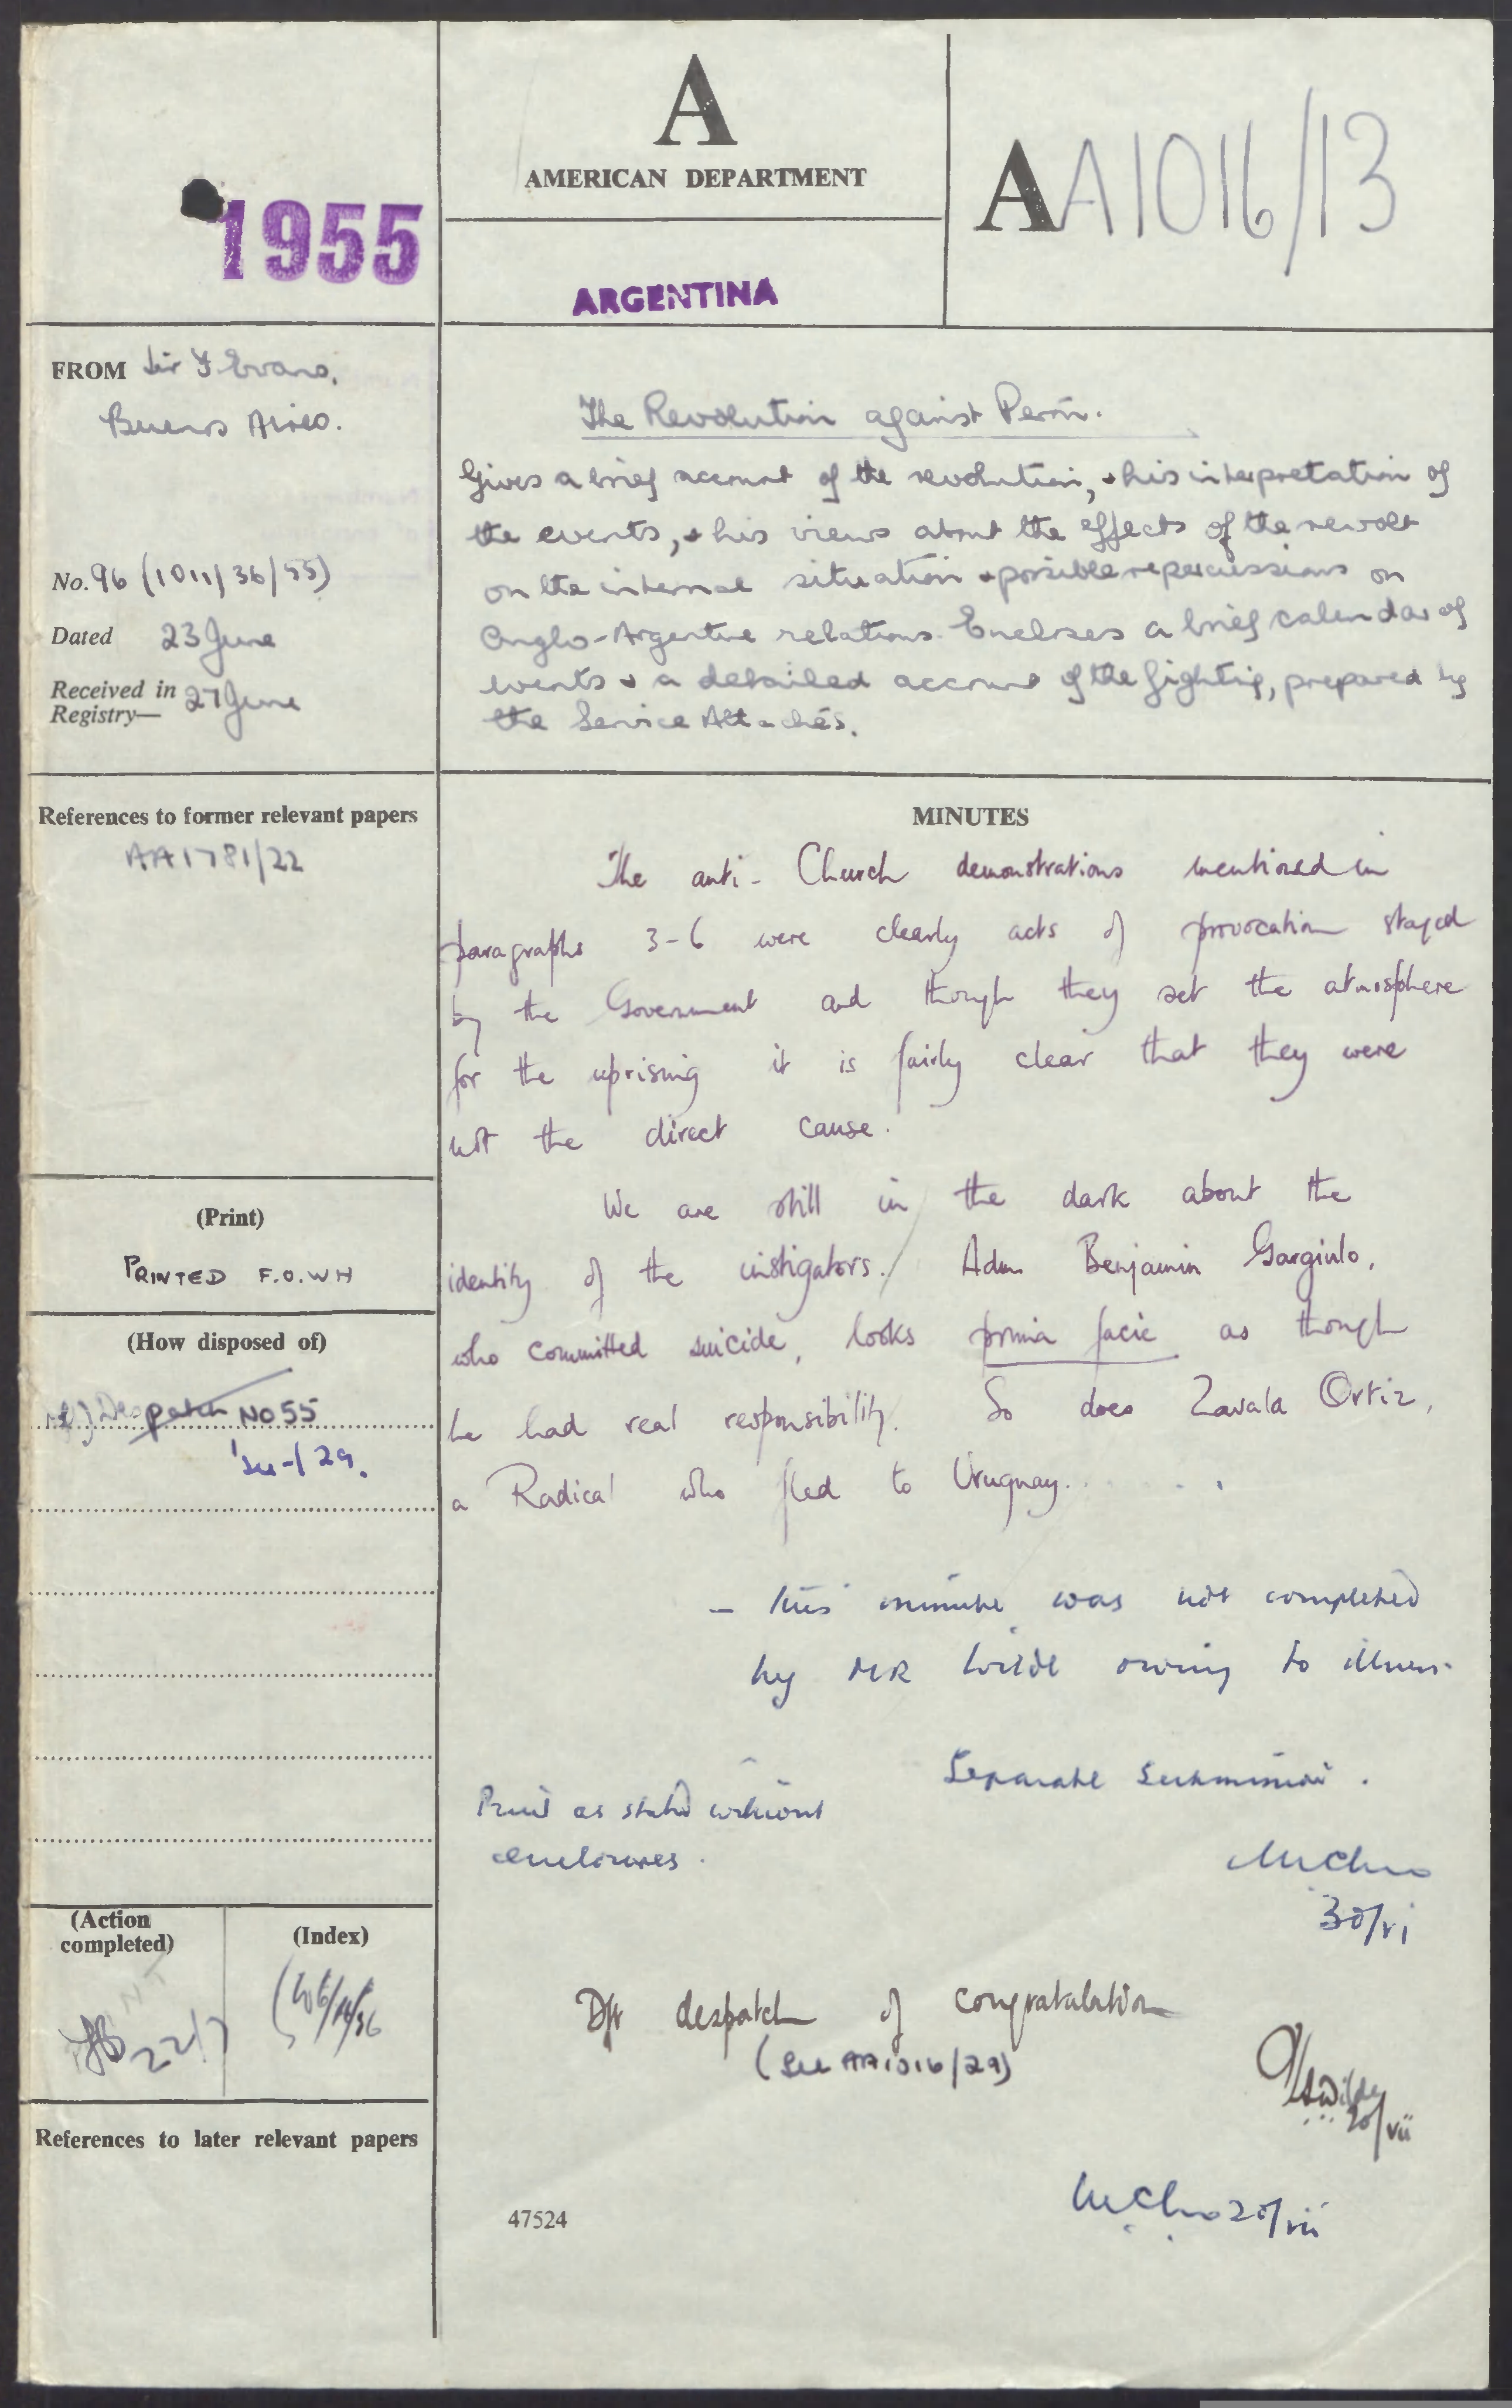 1955
A
AMERICAN DEPARTMENT
ARGENTINA
AA1016/13
FROM Sir F Evans,
Buenos Aires.
No. 96 (1011/36/55)
Dated 23 June
Received in
Registry— 27 June
The Revolution against Perón.
Gives a brief account of the revolution, & his interpretation of
the events, & his views about the effects of the revolt
on the internal situation & possible repercussions on
Anglo-Argentine relations. Encloses a brief calendar of
events & a detailed account of the fighting, prepared by
the Service Attachés.
References to former relevant papers
AA1781/22
(Print)
PRINTED F.O.W H
(How disposed of)
Despatch No 55
29.
(Action
completed)
22/7
(Index)
References to later relevant papers
MINUTES
The anti-Church demonstrations mentioned in
paragraphs 3-6 were clearly acts of provocation staged
by the Government and though they set the atmosphere
for the uprising it is fairly clear that they were
not the direct cause.
We are still in the dark about the
identity of the instigators. Adm Benjamin Gargiulo,
who committed suicide, looks prima facie as though
he had real responsibility. So does Zavala Ortiz,
a Radical who fled to Uruguay......
- This minute was not completed
by MR Wilde owing to illness.
Separate submission.
Print as stated without
enclosures.
30/vi
Dft despatch of congratulation
(See AA1016/29)
Wilde
20/vii
20/vii
47524